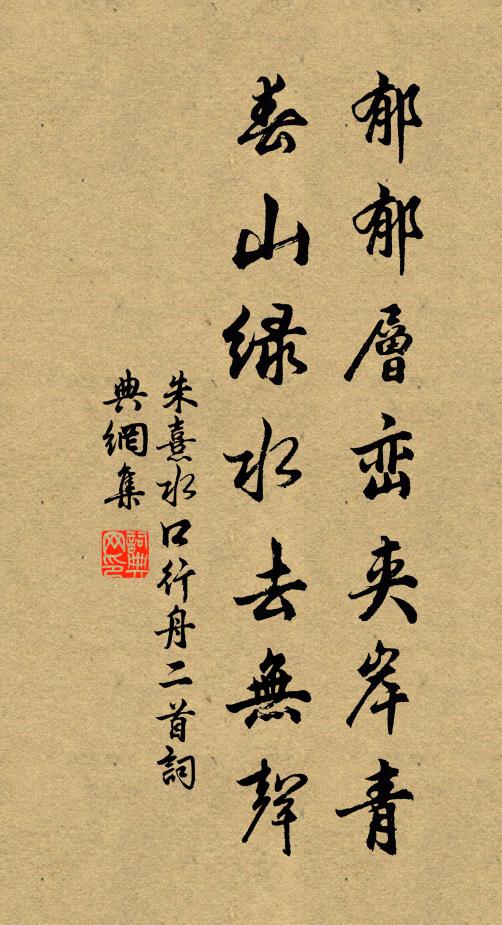 郁郁層峦夾岸青
春山緑水去無聲
朱熹水口行舟二首詞
典網集
詞典网印